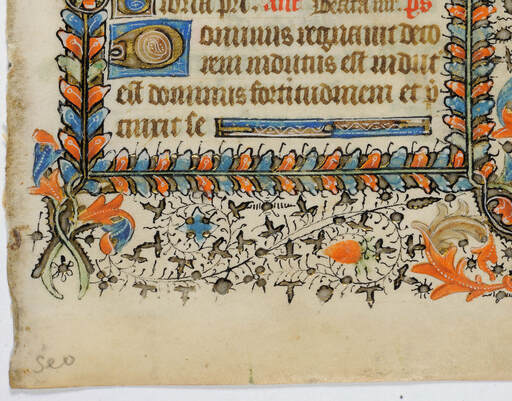 Gloria pri. Ant Beata mr. ps
Dominus regnauit deco
rem indutus est indut
est dominus fortitudinem et p̄
cinxit se
seo